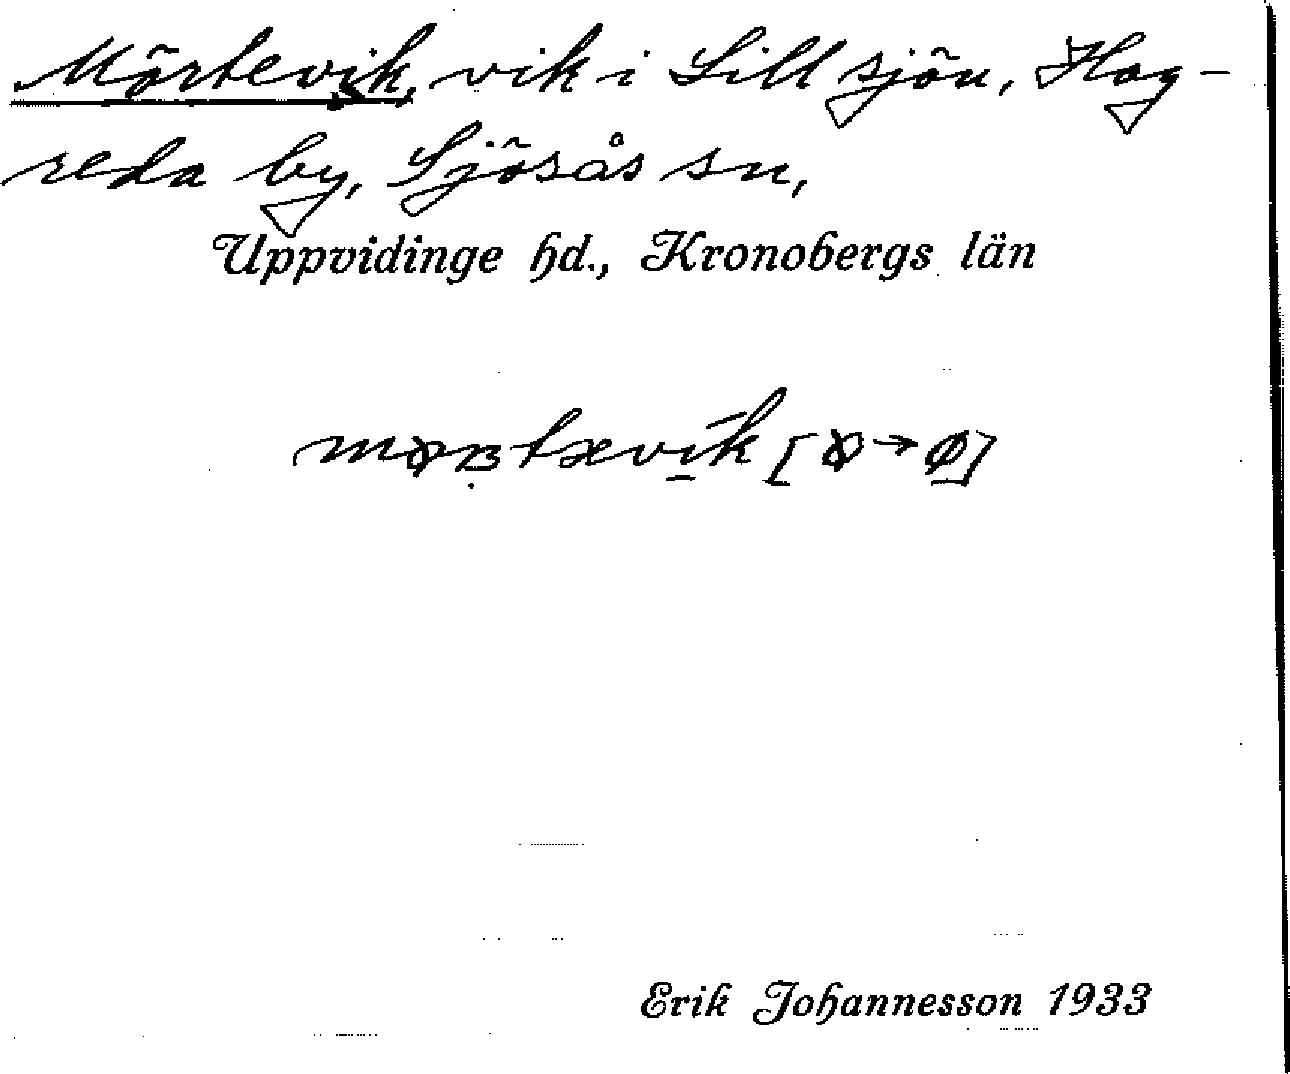 Mörtevik, vik i Lill sjön, Hag-
reda by, Sjösås sn,
Uppvidinge hd., Kronobergs län
Erik Johannesson 1933